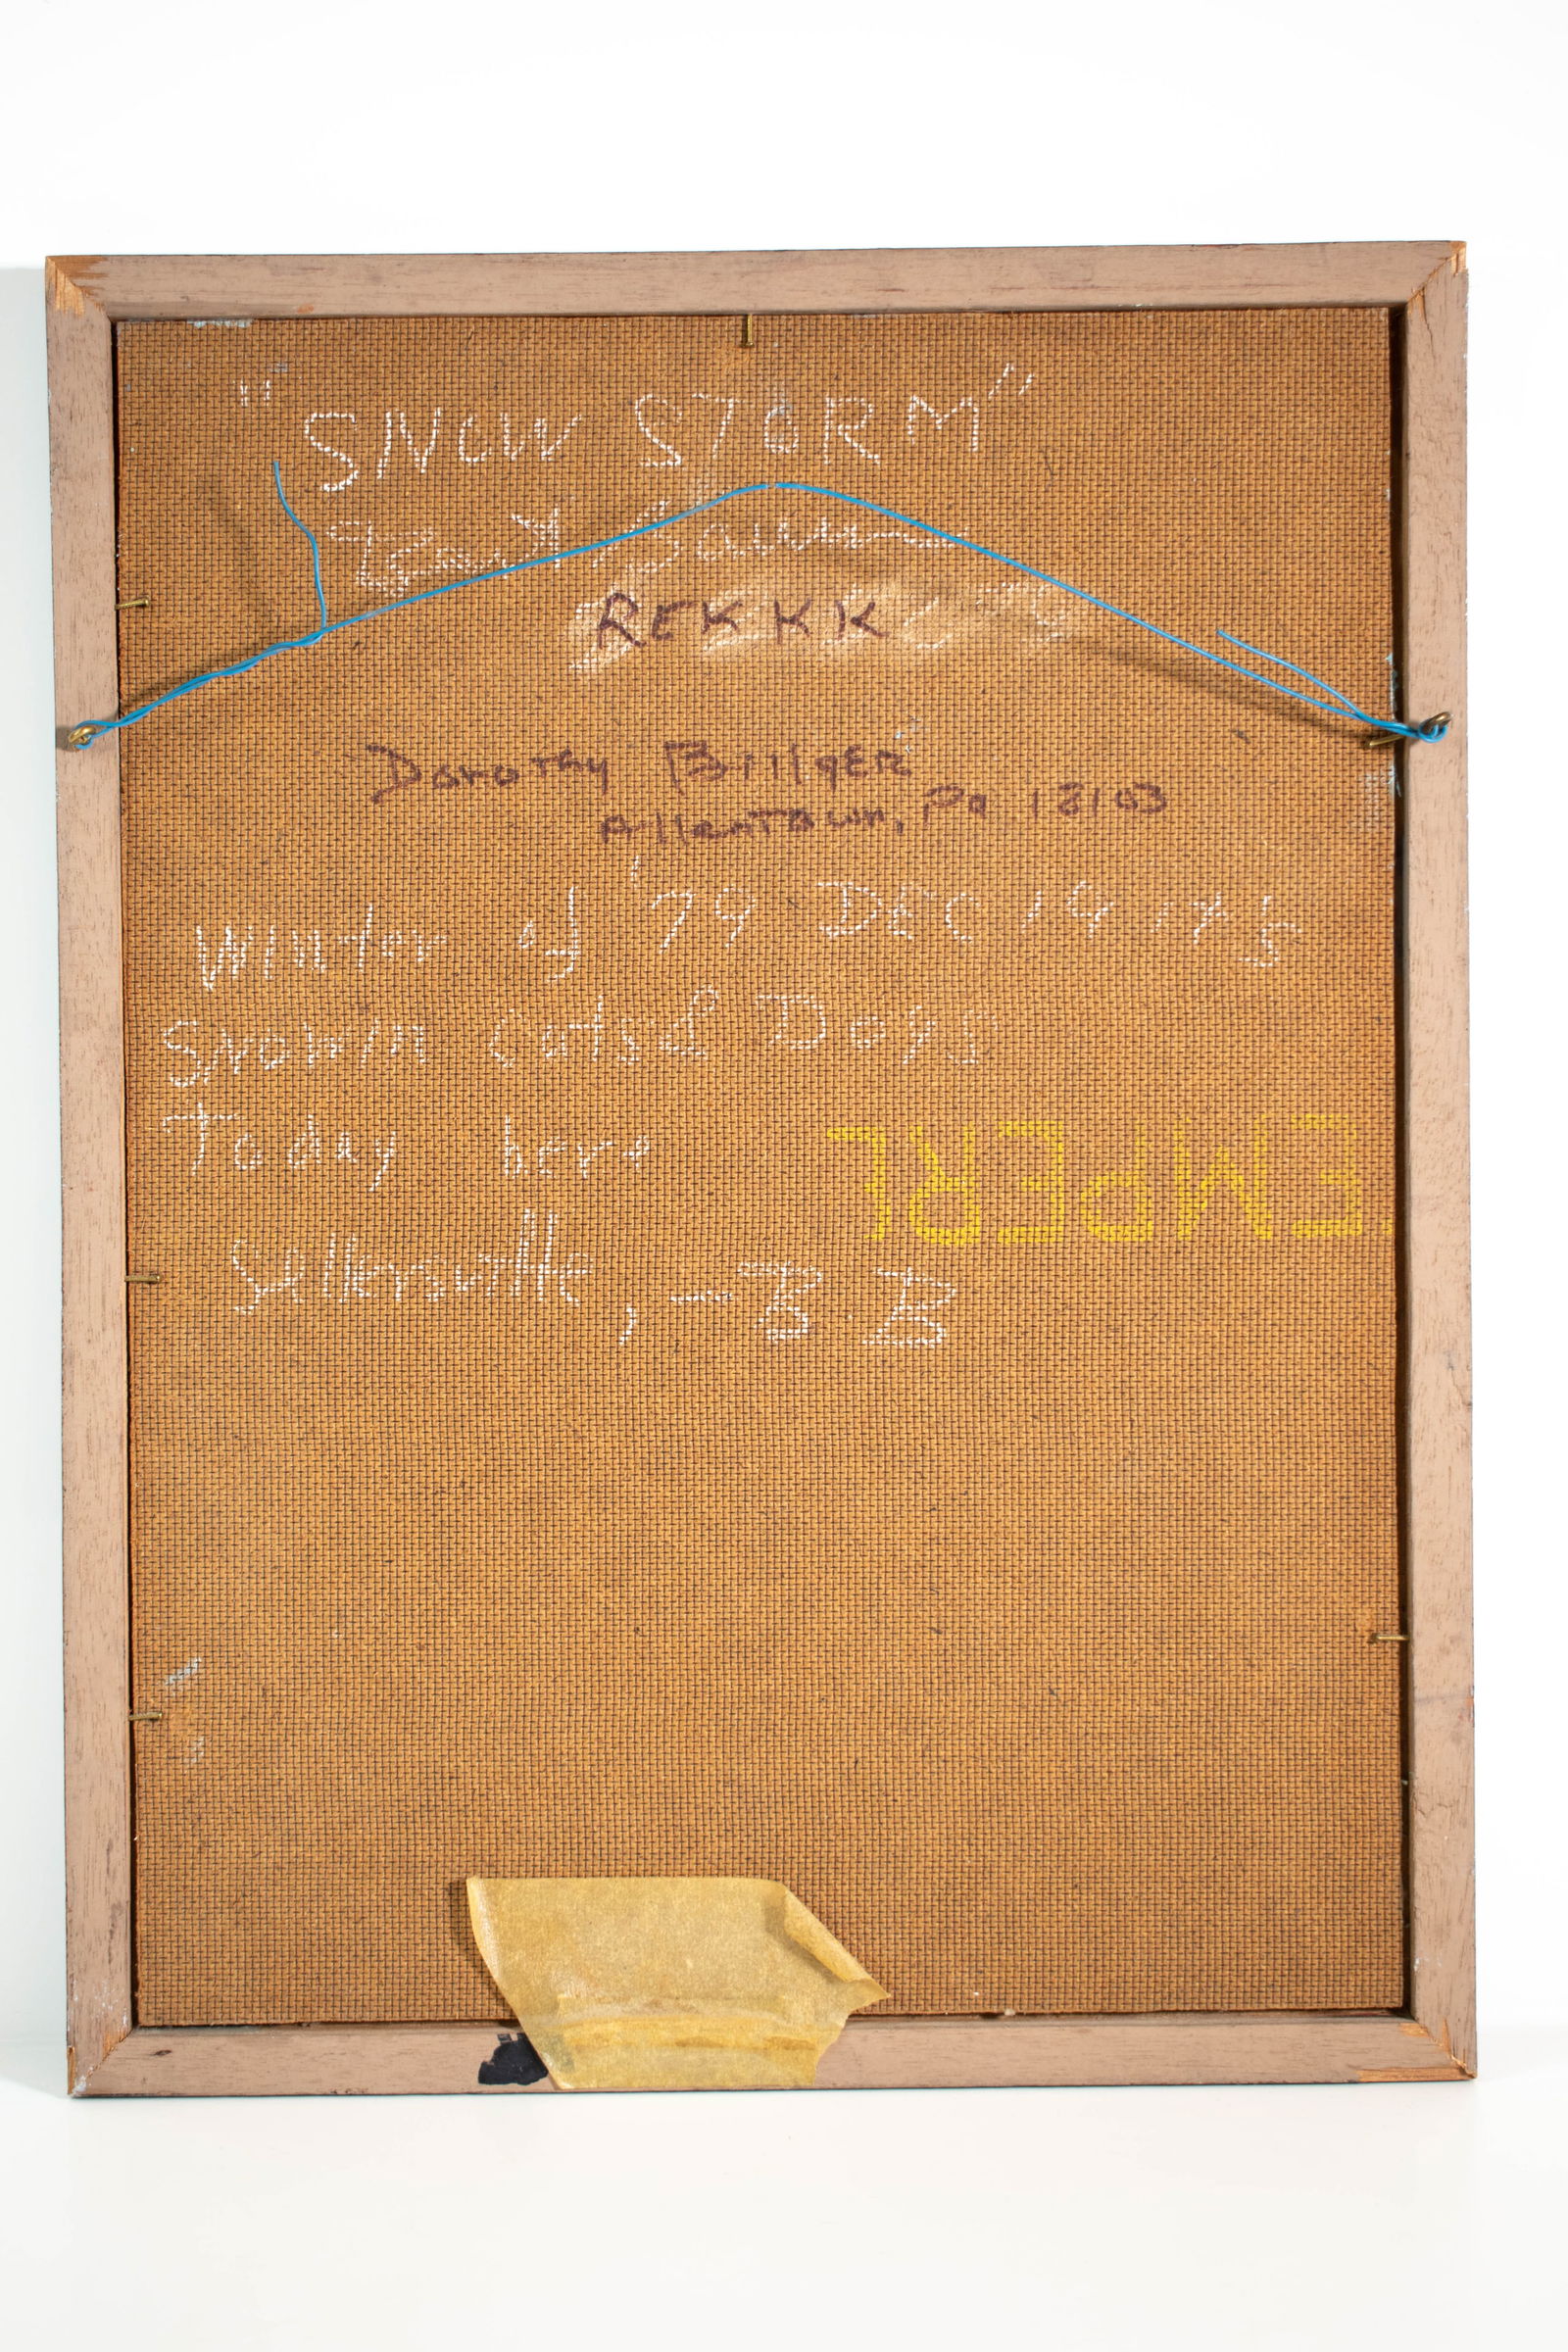 "SNOW STORM"
REKKK
Dorothy BillgER
Allentown, Pa 18103
Winter of '79 DEC 19 it's
Snowin Cats & Dogs
Today here
Sellersville, - B.B
EMPERE